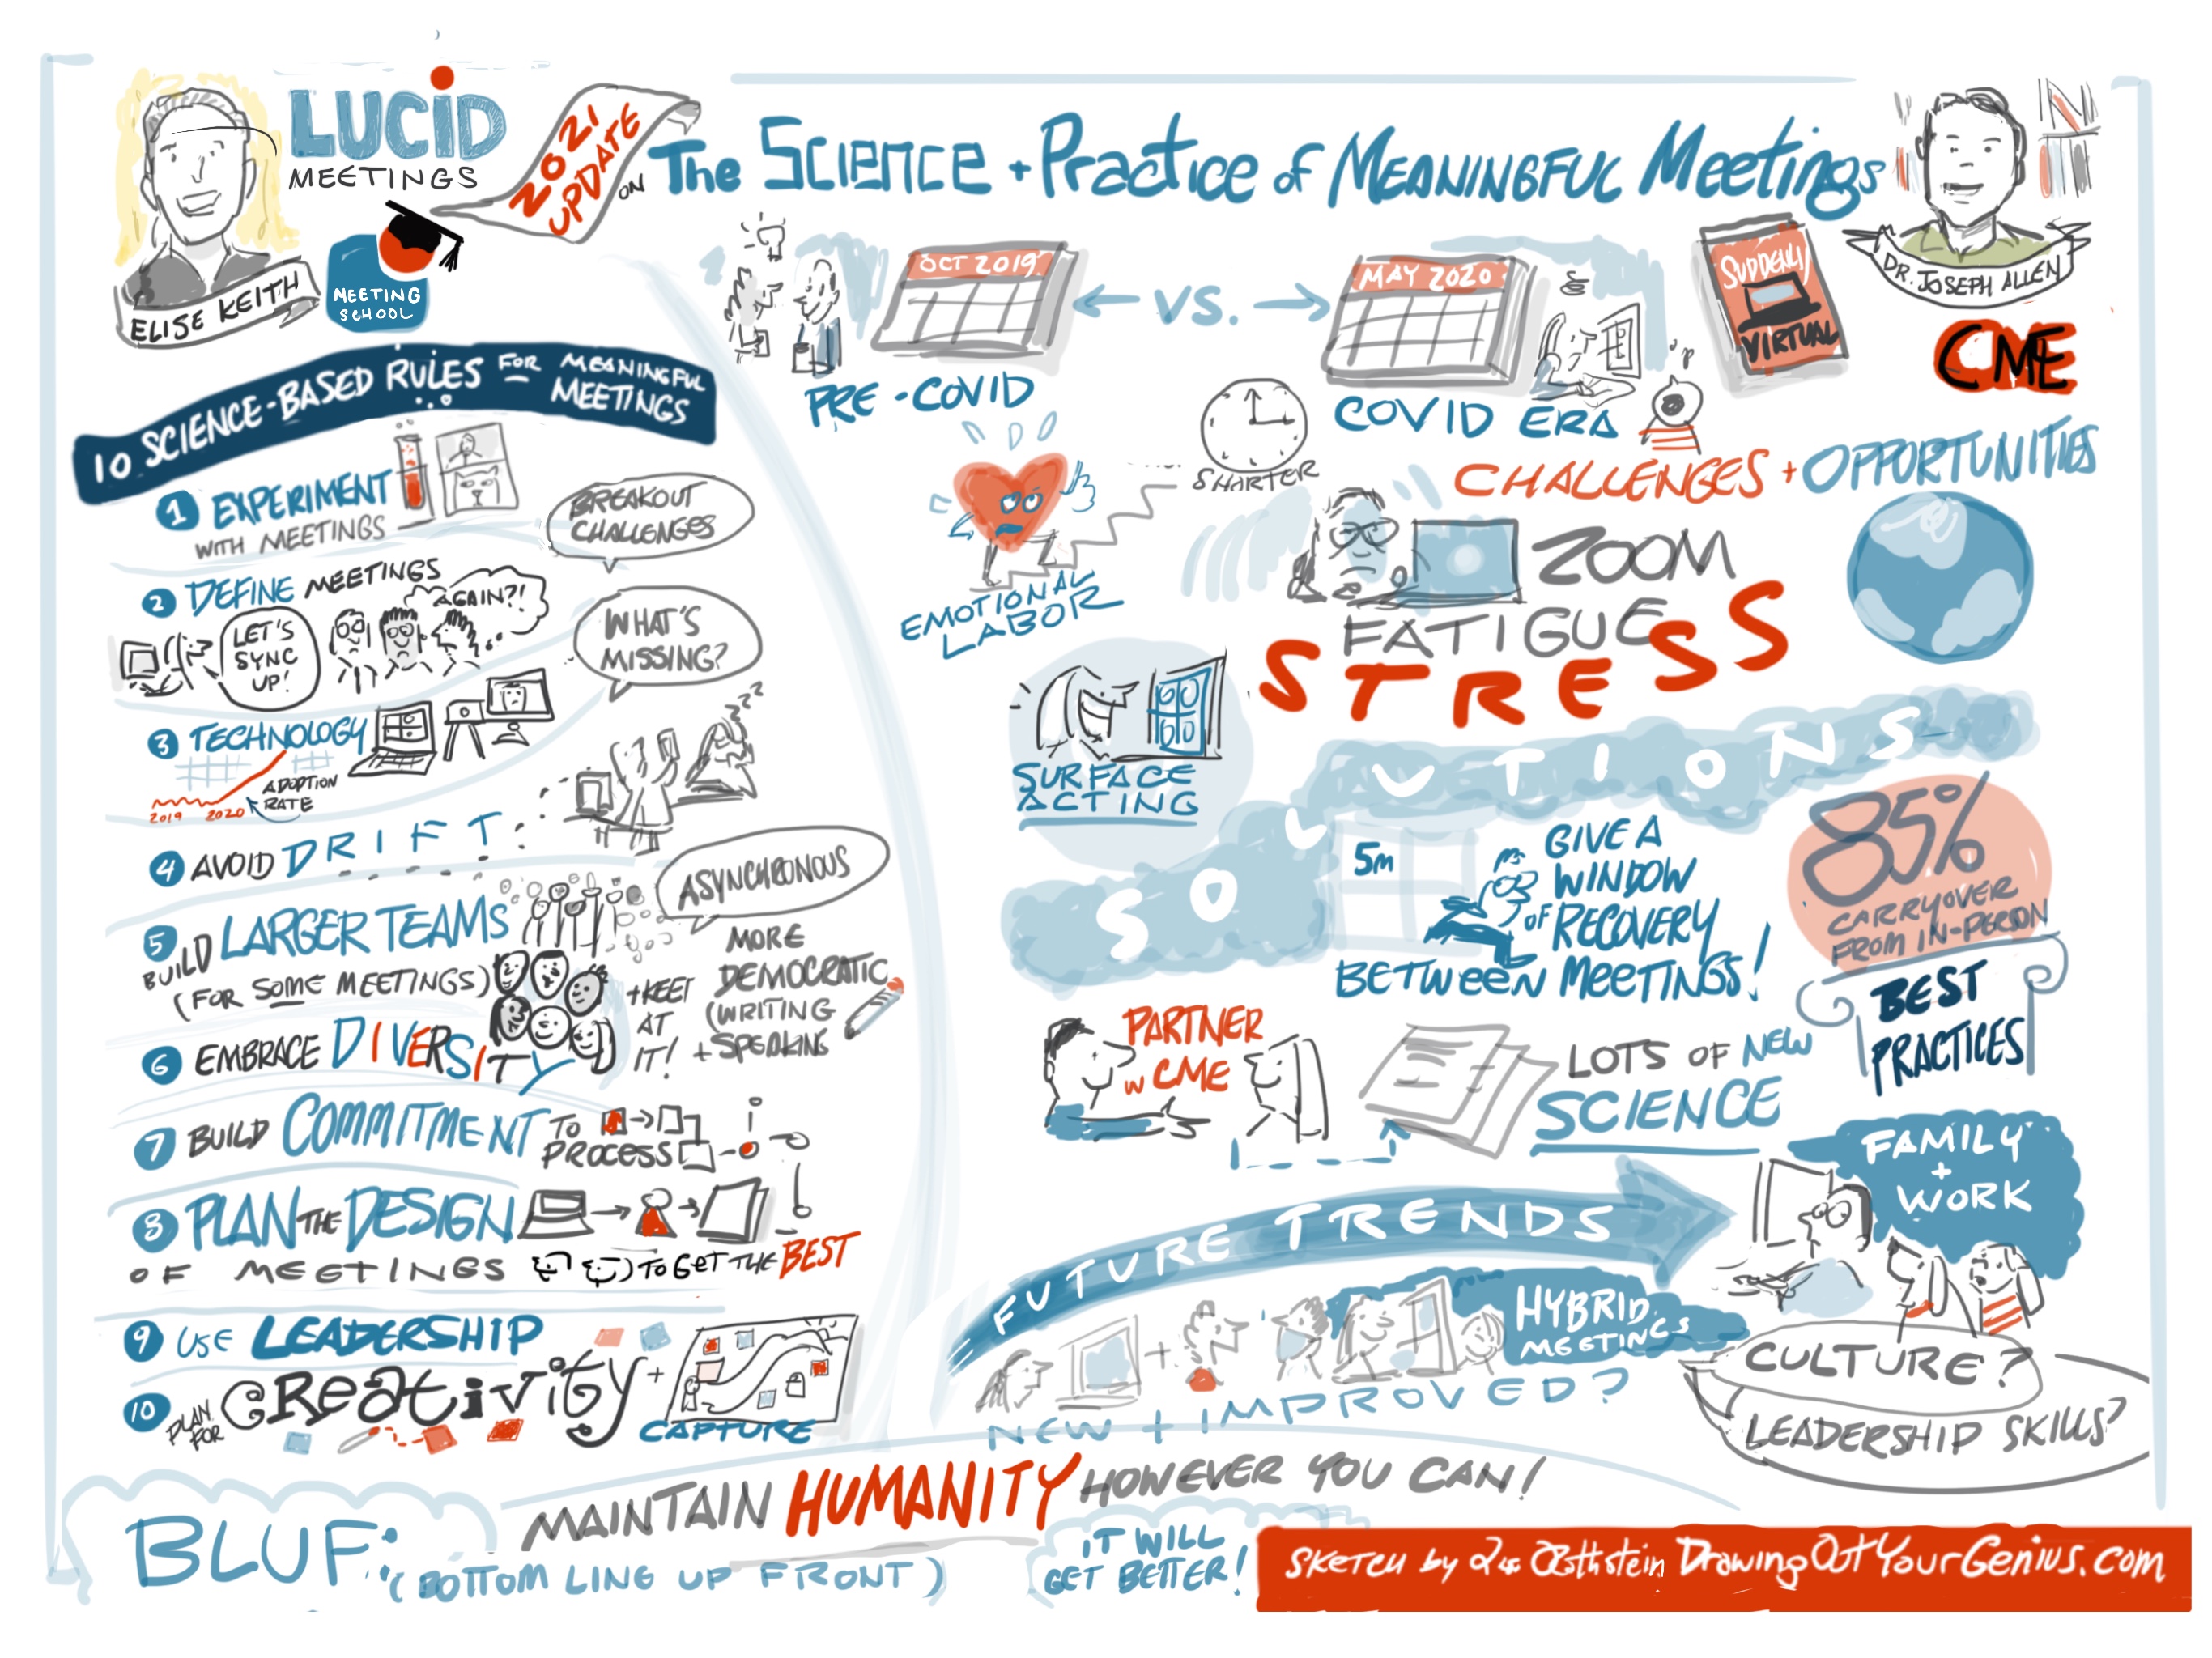 LUCID
MEETINGS
ELISE KEITH
MEETING
SCHOOL
2021
UPDATE
ON
The Science + Practice of Meaningful Meetings
DR. JOSEPH ALLEN
CME
10 SCIENCE-BASED RULES FOR MEANINGFUL
MEETINGS
1 EXPERIMENT
WITH MEETINGS
BREAKOUT
CHALLENGES
2 DEFINE MEETINGS
AGAIN?!
LET'S
SYNC
UP!
WHAT'S
MISSING?
3 TECHNOLOGY
ADOPTION
RATE
2019 2020
4 AVOID DRIFT
zzz
5 BUILD LARGER TEAMS
(FOR SOME MEETINGS)
ASYNCHRONOUS
MORE
DEMOCRATIC
(WRITING
+ SPEAKING
6 EMBRACE DIVERSITY
+ KEET
AT
IT!
7 BUILD COMMITMENT TO
PROCESS
8 PLAN THE DESIGN
OF MEETINGS
TO GET THE BEST
9 USE LEADERSHIP
10 PLAN
FOR
CREATIVITY +
CAPTURE
OCT 2019
← VS. →
MAY 2020
PRE-COVID
COVID ERA
SUDDENLY
VIRTUAL
SHARTER
CHALLENGES + OPPORTUNITIES
EMOTIONAL
LABOR
ZOOM
FATIGUE
STRESS
SURFACE
ACTING
SOLUTIONS
5m
GIVE A
WINDOW
OF RECOVERY
BETWEEN MEETINGS!
85%
CARRYOVER
FROM IN-PERSON
BEST
PRACTICES
PARTNER
W CME
LOTS OF NEW
SCIENCE
FUTURE TRENDS
FAMILY
+
WORK
HYBRID
MEETINGS
NEW + IMPROVED?
CULTURE?
LEADERSHIP SKILLS?
MAINTAIN HUMANITY HOWEVER YOU CAN!
BLUF:
(BOTTOM LING UP FRONT)
IT WILL
GET BETTER!
Sketch by DrawingOutYourGenius.com